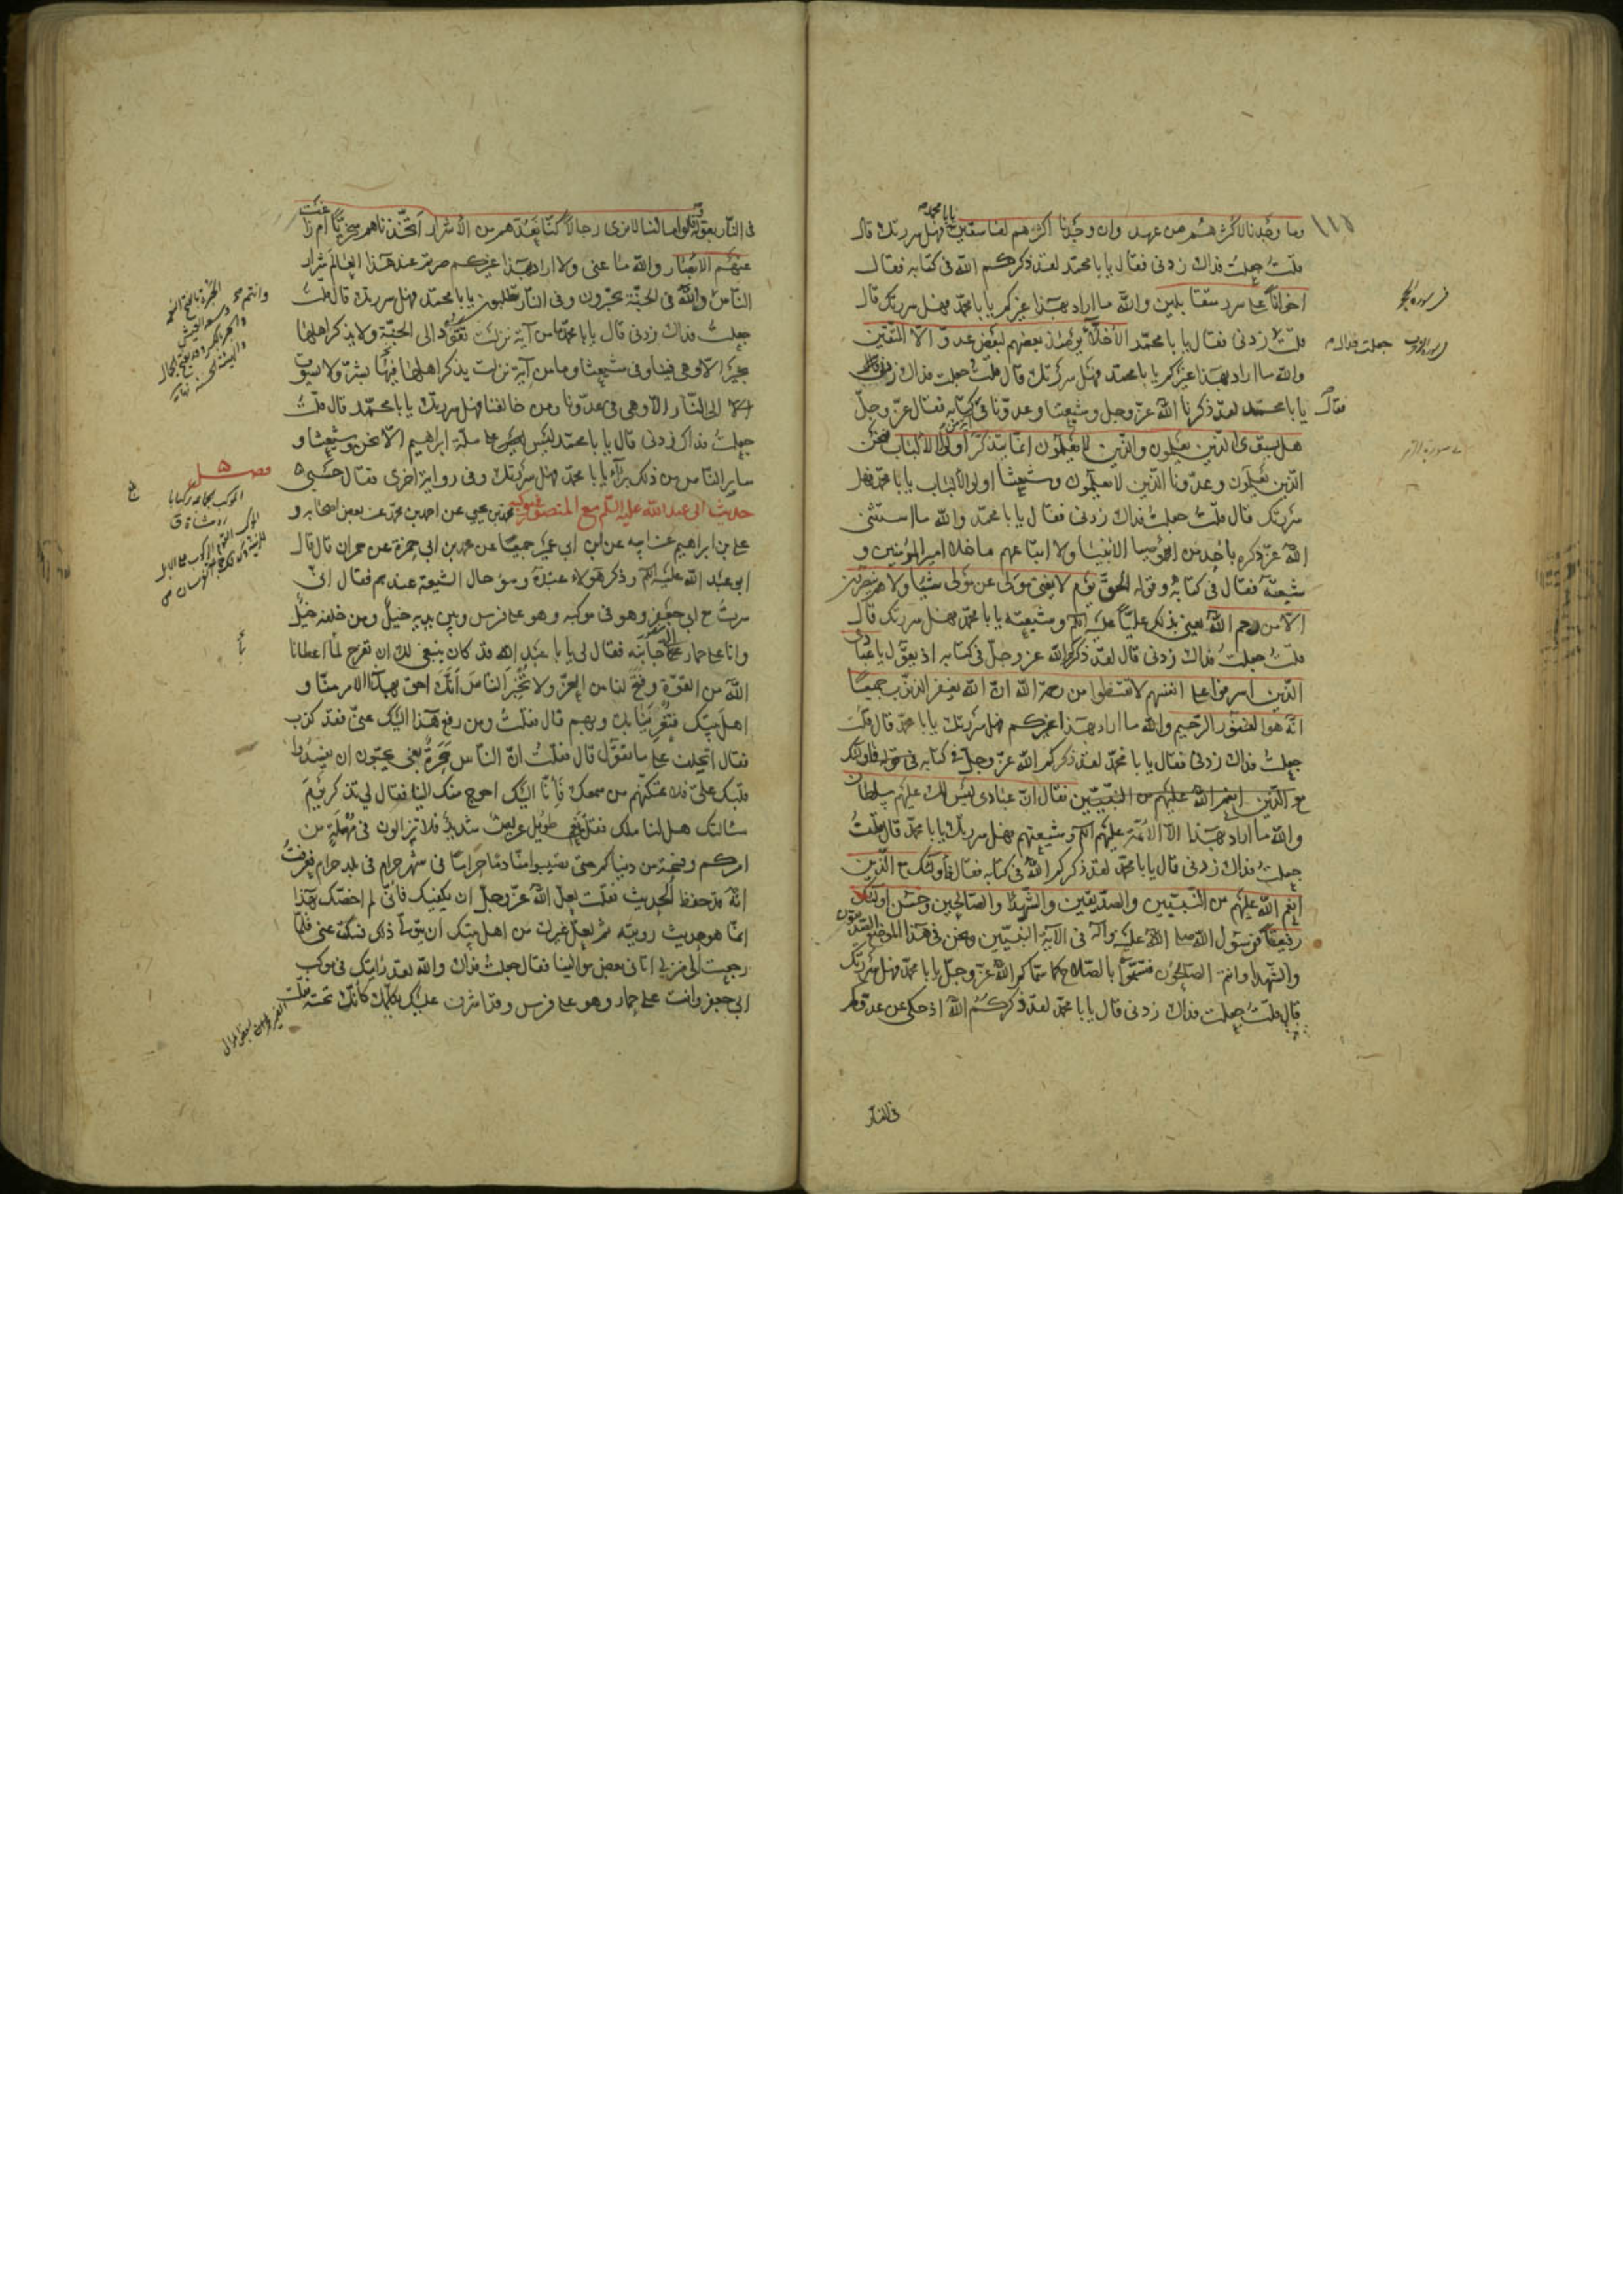 وما وجدنا لاكثرهم من عهد وان وجدنا اكثرهم لفاسقين يابا محمد فهل سررتك قال
قلت جعلت فداك زدنى فقال يا با محمد لقد ذكركم الله فى كتابه فقال
اخوانا على سرر متقابلين والله ما اراد بهذا غيركم يا با محمد فهل سررتك قال
قلت زدنى فقال يا با محمد الاخلاء يومئذ بعضهم لبعض عدو الا المتقين
والله ما اراد بهذا غيركم يا با محمد فهل سررتك قال قلت جعلت فداك زدنى فقال
يا با محمد لقد ذكرنا الله عز وجل وشيعتنا وعدونا فى آية من كتابه فقال عز وجل
هل يستوى الذين يعلمون والذين لا يعلمون انما يتذكر اولوا الالباب فنحن
الذين يعلمون وعدونا الذين لا يعلمون وشيعتنا اولوا الالباب يا با محمد فهل
سررتك قال قلت جعلت فداك زدنى فقال يا با محمد والله ما استثنى
الله عز ذكره باحد من اوصيا الانبيا ولا اتباعهم ما خلا امير المؤمنين و
شيعته فقال فى كتابه وقوله الحق يوم لا يغنى مولى عن مولى شيئا ولا هم ينصرون
الا من رحم الله يعنى بذلك عليا عليه السلم وشيعته يا با محمد فهل سررتك قال
قلت جعلت فداك زدنى قال لقد ذكركم الله عز وجل فى كتابه اذ يقول يا عبادى
الذين اسرفوا على انفسهم لا تقنطوا من رحمة الله ان الله يغفر الذنوب جميعا
انه هو الغفور الرحيم والله ما اراد بهذا غيركم فهل سررتك يا با محمد قال قلت
جعلت فداك زدنى فقال يا با محمد لقد ذكركم الله عز وجل فى كتابه فى قوله فاولئك
مع الذين انعم الله عليهم من النبيين فقال ان عبادى ليس لك عليهم سلطان
والله ما اراد بهذا الا الائمة عليهم السلم وشيعتهم فهل سررتك يا با محمد قال قلت
جعلت فداك زدنى قال يا با محمد لقد ذكركم الله فى كتابه فقال فاولئك مع الذين
انعم الله عليهم من النبيين والصديقين والشهدا والصالحين وحسن اولئك
رفيقا فرسول الله صلى الله عليه وآله فى الآية النبيين ونحن فى هذا الموضع الصديقون
والشهدا وانتم الصالحون فتسموا بالصلاح كما سماكم الله عز وجل يا با محمد فهل سررتك
قال قلت جعلت فداك زدنى قال يا با محمد لقد ذكركم الله اذ حكى عن عدوكم
فى النار
جعلت فداك
فقال
فى النار بقوله وقالوا ما لنا لا نرى رجالا كنا نعدهم من الاشرار اتخذناهم سخريا ام زاغت
عنهم الابصار والله ما عنى ولا اراد بهذا غيركم صرتم عند هذا العالم شرار
الناس وانتم والله فى الجنة تحبرون وفى النار تطلبون يا با محمد فهل سررتك قال قلت
جعلت فداك زدنى قال يا با محمد ما من آية نزلت تقود الى الجنة ولا يذكر اهلها
بخير الا وهى فينا وفى شيعتنا وما من آية نزلت يذكر اهلها فيها بشر ولا تسوق
الى النار الا وهى فى عدونا ومن خالفنا فهل سررتك يا با محمد قال قلت
جعلت فداك زدنى قال يا با محمد ليس على ملة ابراهيم الا نحن وشيعتنا و
ساير الناس من ذلك براء يا با محمد فهل سررتك وفى رواية اخرى فقال حسبى
حديث ابى عبد الله عليه السلم مع المنصور فى موكبه محمد بن يحيى عن احمد بن محمد عن بعض اصحابه و
على بن ابراهيم عن ابيه عن ابن ابى عمير جميعا عن محمد بن ابى حمزة عن حمران قال قال
ابو عبد الله عليه السلم وذكر هؤلاء عنده وسوء حال الشيعة عندهم فقال انى
سرت مع ابى جعفر وهو فى موكبه وهو على فرس وبين يديه خيل ومن خلفه خيل
وانا على حمار الى جانبه فقال لى يا با عبد الله قد كان ينبغى لك ان تفرح لما اعطانا
الله من القوة وفتح لنا من العز ولا تخبر الناس انك احق بهذا الامر منا و
اهل بيتك فتغرينا بك وبهم قال فقلت ومن رفع هذا اليك عنى فقد كذب
فقال اتحلف على ما تقول قال فقلت ان الناس سحرة يعنى يحبون ان يفسدوا
قلبك على فلا تمكنهم من سمعك فانا اليك احوج منك الينا فقال لى تذكر يوم
سألتك هل لنا ملك فقلت نعم طويل عريض شديد فلا تزالون فى مهلة من
امركم وفسحة من دنياكم حتى تصيبوا منا دما حراما فى شهر حرام فى بلد حرام فعرفت
انه قد حفظ الحديث فقلت لعل الله عز وجل ان يكفيك فانى لم اخصك بهذا
انما هو حديث رويته ثم لعل غيرك من اهل بيتك ان يتولى ذلك فسكت عنى فلما
رجعت الى منزلى اتانى بعض موالينا فقال جعلت فداك والله لقد رايتك فى موكب
ابى جعفر وانت على حمار وهو على فرس وقد اشرف عليك يكلمك كانك تحته فقلت